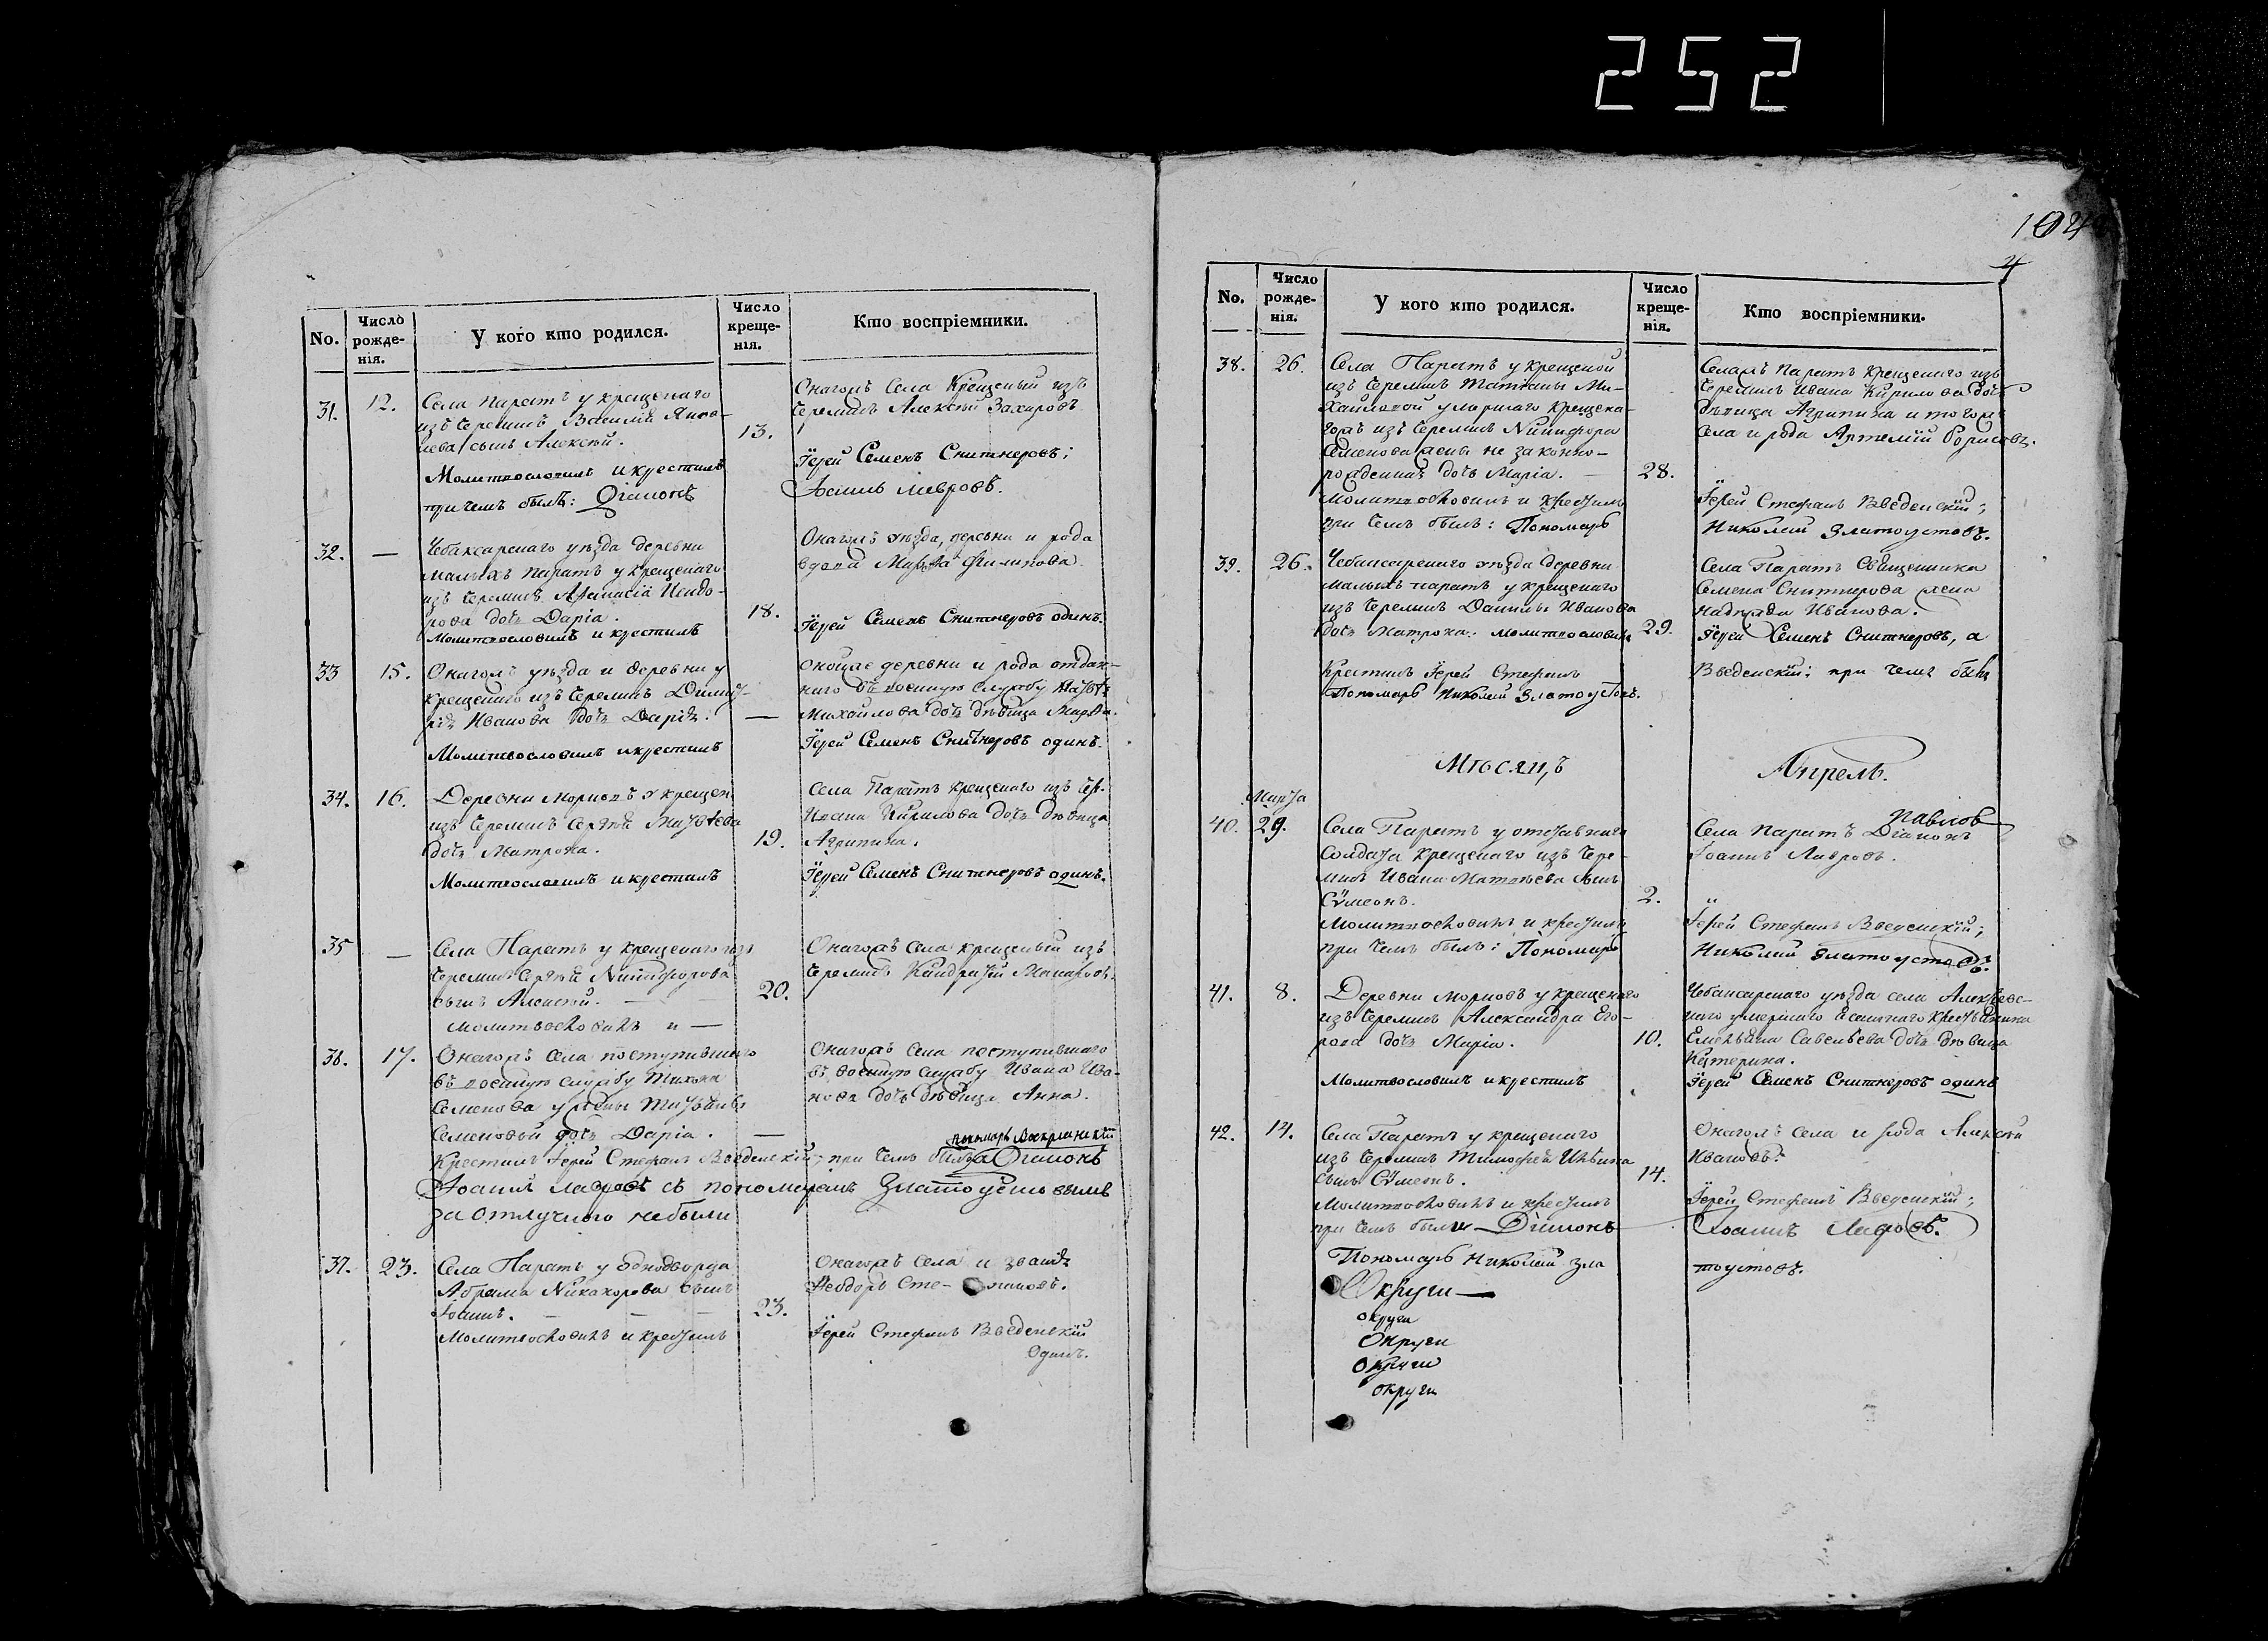 252
No.
Число рожде-нія.
У кого кто родился.
Число креще-нія.
Кто воспріемники.
31.
12.
Села Паратъ у крещенаго
изъ Черемисъ Василія
сынъ Алексѣй.
Молитвословилъ и крестилъ
при чемъ былъ: Діаконъ
13.
Онагожъ Села Крещеный изъ
Черемисъ Алексѣй Захаровъ
Іерей Семенъ Снитнеровъ;
Іоаннъ Лавровъ.
32.
—
Чебаксарскаго уѣзда деревни
малыхъ Паратъ у крещенаго
изъ Черемисъ Афанасія Исидо-
рова дочь Дарія.
Молитвословилъ и крестилъ
18.
Онагожъ уѣзда, деревни и рода
вдова Марѳа Филипова
Іерей Семенъ Снитнеровъ одинъ.
33
15.
Онагожъ уѣзда и деревни у
крещенаго изъ Черемисъ Димит-
рія Иванова дочь Дарія.
Молитвословилъ и крестилъ
—
оной же деревни и рода отдан-
наго въ военную службу
Михайлова дочь дѣвица Марѳа.
Іерей Семенъ Снитнеровъ одинъ.
34.
16.
Деревни Морковъ у крещен.
изъ Черемисъ Сергѣя Матвѣева
дочь Матрона.
Молитвословилъ и крестилъ
19.
Села Паратъ крещенаго изъ Чер.
Ивана Кирилова дочь дѣвица
Агрипина.
Іерей Семенъ Снитнеровъ одинъ.
35
—
Села Паратъ у крещенаго изъ
Черемисъ Сергѣя Никифорова
сынъ Алексѣй.
молитвословилъ и —
20.
Онагожъ села крещеный изъ
Черемисъ Кондратій Макаровъ.
36.
17.
Онагожъ Села поступившаго
въ военную службу Тихона
Семенова у жены Татьяны
Семеновой дочь Дарія.
—
Онагожъ Села поступившаго
въ военную службу Ивана Ива-
нова дочь дѣвица Анна.
Крестилъ Іерей Стефанъ Введенскій; при чемъ
пономарь
а Діаконъ
Іоаннъ Лавровъ съ пономаремъ Златоустовымъ
за отлучкою небыли
37.
23.
Села Паратъ у Однодворца
Абрама Никанорова сынъ
Іоаннъ.
Молитвословилъ и крестилъ
23.
Онагожъ Села и званія
Ѳеодоръ Сте-
Іерей Стефанъ Введенскій
Одинъ.
104
4
No.
Число рожде-нія.
У кого кто родился.
Число креще-нія.
Кто воспріемники.
38.
26.
Села Паратъ у крещеной
изъ Черемисъ Татьяны Ми-
хайловой умершаго крещена-
гожъ изъ Черемисъ Никифора
Семенова жены не законно-
рожденная дочь Марія.
молитвословилъ и крестилъ
при чемъ былъ: Пономарь
28.
Села Паратъ крещенаго изъ
Черемисъ Ивана Кирилова дочь
дѣвица Агрипина и тогожъ
Села и рода Артемій Борисовъ.
Іерей Стефанъ Введенскій;
Николай Златоустовъ.
39.
26.
Чебаксарскаго уѣзда деревни
малыхъ паратъ у крещенаго
изъ Черемисъ Данилы Иванова
дочь Матрона. молитвословилъ
29.
Села Паратъ Священника
Семена Снитнерова жена
Надежда Иванова.
Іерей Семенъ Снитнеровъ, а
Крестилъ Іерей Стефанъ
Введенскій: при чемъ былъ
Пономарь Николай Златоустовъ.
Мѣсяцъ
Апрель.
Марта
40.
29.
Села Паратъ у отставнаго
Солдата крещенаго изъ Чере-
мисъ Ивана Матвѣева сынъ
Сѵмеонъ.
молитвословилъ и крестилъ
при чемъ былъ: Пономарь
2.
Павлов
Села Паратъ Діаконъ
Іоаннъ Лавровъ.
Іерей Стефанъ Введенскій;
Николай Златоустовъ.
41.
8.
Деревни Морковъ у крещенаго
изъ Черемисъ Александра Его-
рова дочь Марія.
Молитвословилъ и крестилъ
10.
Чебаксарскаго уѣзда села Алексѣевс-
каго умершаго Ясашнаго крестьянина
Емельяна Савельева дочь дѣвица
Катерина.
Іерей Семенъ Снитнеровъ одинъ
42.
14.
Села Паратъ у крещенаго
изъ Черемисъ Тимофея Ильина
сынъ Сѵмеонъ.
молитвословилъ и крестилъ
при чемъ были — Діаконъ
Пономарь Николай Зла
14.
Онагожъ села и рода Алексѣй
Ивановъ.
Іерей Стефанъ Введенскій;
Іоаннъ Лавровъ.
тоустовъ.
Округи —
округи
Округи
округи
округи